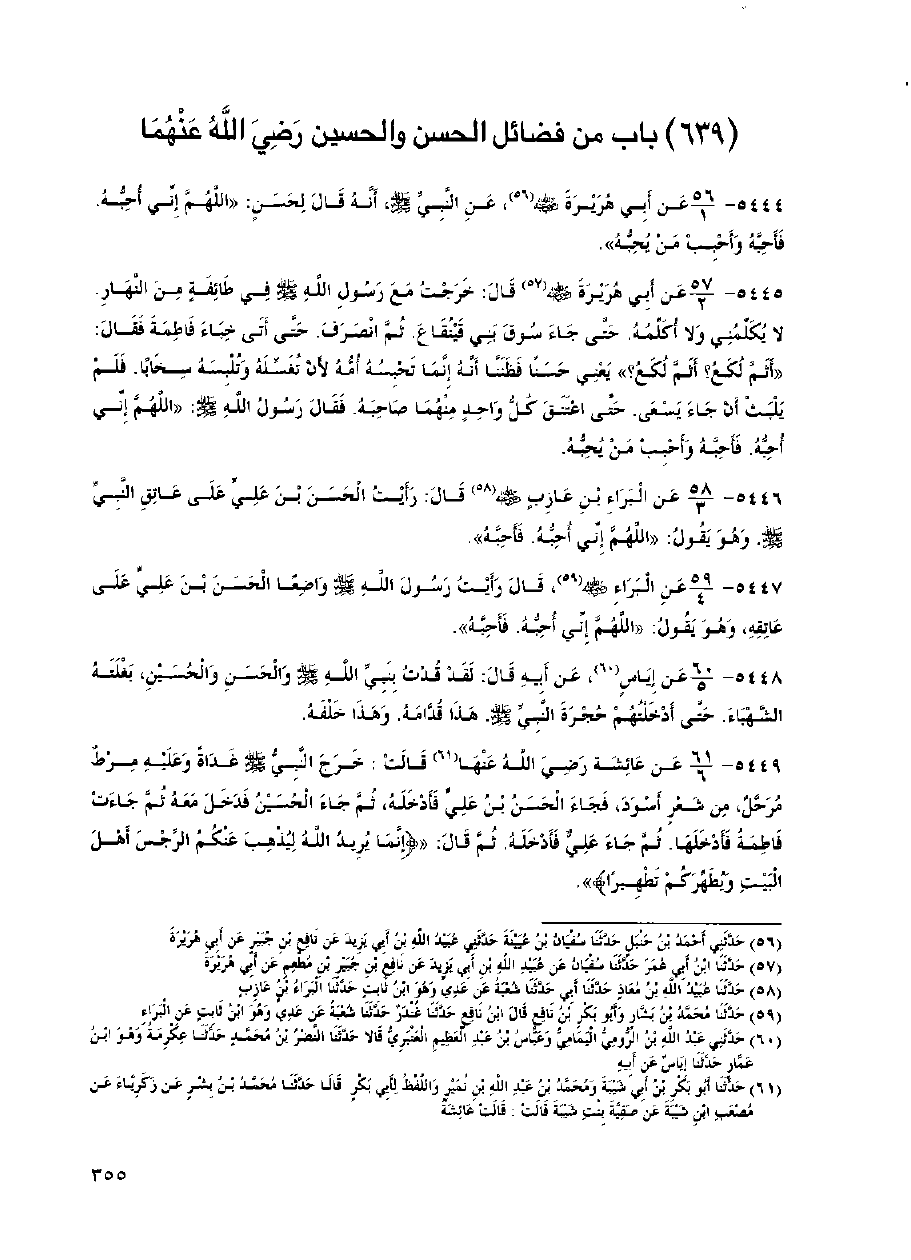 (٦٣٩) باب من فضائل الحسن والحسين رَضِيَ اللَّهُ عَنْهُمَا
٥٤٤٤- ٥٦/١ عَن أَبِي هُرَيْرَةَ ﷺ(٥٦)، عَنِ النَّبِيِّ ﷺ، أَنَّهُ قَالَ لِحَسَنٍ: «اللَّهُمَّ إِنِّي أُحِبُّهُ.
فَأَحِبَّهُ وَأَحْبِبْ مَنْ يُحِبُّهُ».
٥٤٤٥- ٥٧/٢ عَن أَبِي هُرَيْرَةَ ﷺ(٥٧) قَالَ: خَرَجْتُ مَعَ رَسُولِ اللَّهِ ﷺ فِي طَائِفَةٍ مِنَ النَّهَارِ.
لا يُكَلِّمُنِي وَلا أُكَلِّمُهُ. حَتَّى جَاءَ سُوقَ بَنِي قَيْنُقَاعَ. ثُمَّ انْصَرَفَ. حَتَّى أَتَى خِبَاءَ فَاطِمَةَ فَقَالَ:
«أَثَمَّ لُكَعُ؟ أَثَمَّ لُكَعُ؟» يَعْنِي حَسَنًا فَظَنَنَّا أَنَّهُ إِنَّمَا تَحْبِسُهُ أُمُّهُ لأَنْ تُغَسِّلَهُ وَتُلْبِسَهُ سِخَابًا. فَلَمْ
يَلْبَثْ أَنْ جَاءَ يَسْعَى. حَتَّى اعْتَنَقَ كُلُّ وَاحِدٍ مِنْهُمَا صَاحِبَهُ. فَقَالَ رَسُولُ اللَّهِ ﷺ: «اللَّهُمَّ إِنِّي
أُحِبُّهُ. فَأَحِبَّهُ وَأَحْبِبْ مَنْ يُحِبُّهُ.
٥٤٤٦- ٥٨/٣ عَنِ الْبَرَاءِ بْنِ عَازِبٍ ﷺ(٥٨) قَالَ: رَأَيْتُ الْحَسَنَ بْنَ عَلِيٍّ عَلَى عَاتِقِ النَّبِيِّ
ﷺ. وَهُوَ يَقُولُ: «اللَّهُمَّ إِنِّي أُحِبُّهُ. فَأَحِبَّهُ».
٥٤٤٧- ٥٩/٤ عَنِ الْبَرَاءِ ﷺ(٥٩)، قَالَ رَأَيْتُ رَسُولَ اللَّهِ ﷺ وَاضِعًا الْحَسَنَ بْنَ عَلِيٍّ عَلَى
عَاتِقِهِ، وَهُوَ يَقُولُ: «اللَّهُمَّ إِنِّي أُحِبُّهُ. فَأَحِبَّهُ».
٥٤٤٨- ٦٠/٥ عَن إِيَاسٍ(٦٠)، عَن أَبِيهِ قَالَ: لَقَدْ قُدْتُ بِنَبِيِّ اللَّهِ ﷺ وَالْحَسَنِ وَالْحُسَيْنِ، بَغْلَتَهُ
الشَّهْبَاءَ. حَتَّى أَدْخَلْتُهُمْ حُجْرَةَ النَّبِيِّ ﷺ. هَذَا قُدَّامَهُ. وَهَذَا خَلْفَهُ.
٥٤٤٩- ٦١/٦ عَن عَائِشَةَ رَضِيَ اللَّهُ عَنْهَا(٦١) قَالَتْ : خَرَجَ النَّبِيُّ ﷺ غَدَاةً وَعَلَيْهِ مِرْطٌ
مُرَحَّلٌ، مِن شَعْرٍ أَسْوَدَ، فَجَاءَ الْحَسَنُ بْنُ عَلِيٍّ فَأَدْخَلَهُ، ثُمَّ جَاءَ الْحُسَيْنُ فَدَخَلَ مَعَهُ ثُمَّ جَاءَتْ
فَاطِمَةُ فَأَدْخَلَهَا. ثُمَّ جَاءَ عَلِيٌّ فَأَدْخَلَهُ. ثُمَّ قَالَ: «﴿إِنَّمَا يُرِيدُ اللَّهُ لِيُذْهِبَ عَنْكُمُ الرِّجْسَ أَهْلَ
الْبَيْتِ وَيُطَهِّرَكُمْ تَطْهِيرًا﴾».
(٥٦) حَدَّثَنِي أَحْمَدُ بْنُ حَنْبَلٍ حَدَّثَنَا سُفْيَانُ بْنُ عُيَيْنَةَ حَدَّثَنِي عُبَيْدُ اللَّهِ بْنُ أَبِي يَزِيدَ عَن نَافِعِ بْنِ جُبَيْرٍ عَن أَبِي هُرَيْرَةَ
(٥٧) حَدَّثَنَا ابْنُ أَبِي عُمَرَ حَدَّثَنَا سُفْيَانُ عَن عُبَيْدِ اللَّهِ بْنِ أَبِي يَزِيدَ عَن نَافِعِ بْنِ جُبَيْرِ بْنِ مُطْعِمٍ عَن أَبِي هُرَيْرَةَ
(٥٨) حَدَّثَنَا عُبَيْدُ اللَّهِ بْنُ مُعَاذٍ حَدَّثَنَا أَبِي حَدَّثَنَا شُعْبَةُ عَن عَدِيٍّ وَهُوَ ابْنُ ثَابِتٍ حَدَّثَنَا الْبَرَاءُ بْنُ عَازِبٍ
(٥٩) حَدَّثَنَا مُحَمَّدُ بْنُ بَشَّارٍ وَأَبُو بَكْرِ بْنُ نَافِعٍ قَالَ ابْنُ نَافِعٍ حَدَّثَنَا غُنْدَرٌ حَدَّثَنَا شُعْبَةُ عَن عَدِيٍّ وَهُوَ ابْنُ ثَابِتٍ عَنِ الْبَرَاءِ
(٦٠) حَدَّثَنِي عَبْدُ اللَّهِ بْنُ الرُّومِيِّ الْيَمَامِيُّ وَعَبَّاسُ بْنُ عَبْدِ الْعَظِيمِ الْعَنْبَرِيُّ قَالا حَدَّثَنَا النَّضْرُ بْنُ مُحَمَّدٍ حَدَّثَنَا عِكْرِمَةُ وَهُوَ ابْنُ
عَمَّارٍ حَدَّثَنَا إِيَاسٌ عَن أَبِيهِ
(٦١) حَدَّثَنَا أَبُو بَكْرِ بْنُ أَبِي شَيْبَةَ وَمُحَمَّدُ بْنُ عَبْدِ اللَّهِ بْنِ نُمَيْرٍ وَاللَّفْظُ لِأَبِي بَكْرٍ قَالَا حَدَّثَنَا مُحَمَّدُ بْنُ بِشْرٍ عَن زَكَرِيَّاءَ عَن
مُصْعَبِ ابْنِ شَيْبَةَ عَن صَفِيَّةَ بِنْتِ شَيْبَةَ قَالَتْ : قَالَتْ عَائِشَةُ
٣٥٥